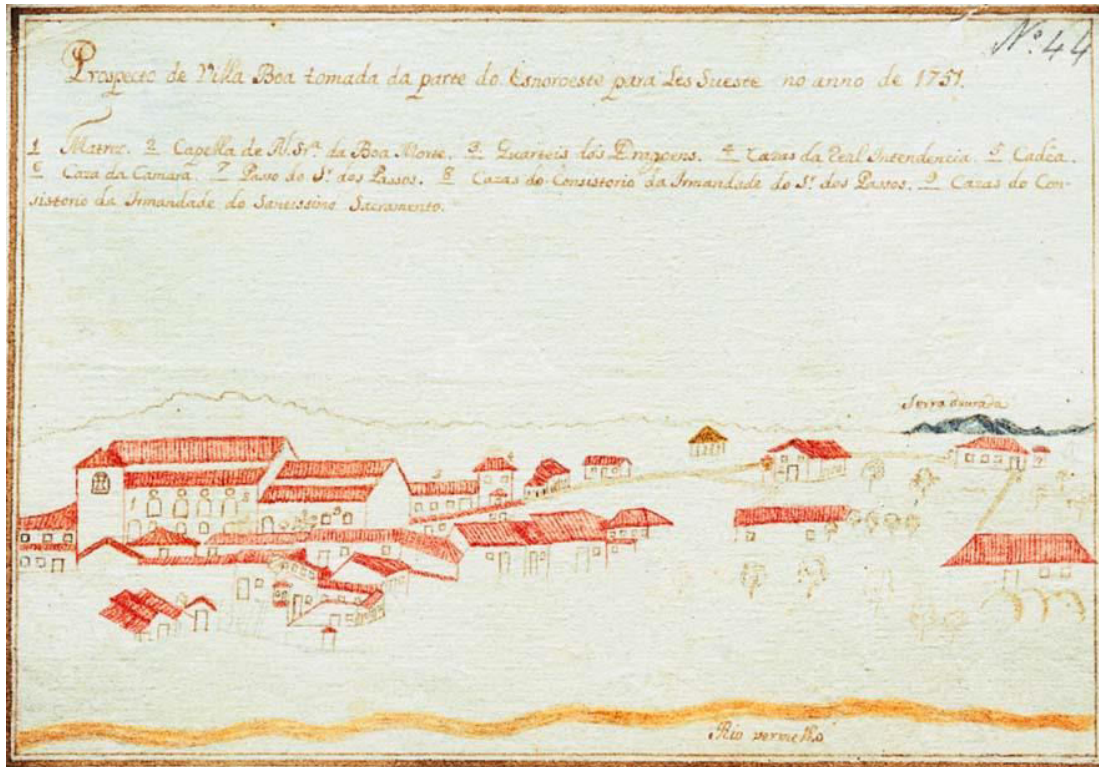 Nº 44
Prospecto de Villa Boa tomada da parte do Esnoroeste para Les Sueste no anno de 1751.
1 Matriz. 2 Capella de N. Srª. da Boa Morte. 3 Quarteis dos Dragoens. 4 Cazas da Real Intendencia. 5 Cadêa.
6 Caza da Camara. 7 Passo do Sr. dos Passos. 8 Cazas do Consistorio da Irmandade do Sr. dos Passos. 9 Cazas do Con-
sistorio da Irmandade do Sanctissimo Sacramento.
Serra dourada
Rio vermelho